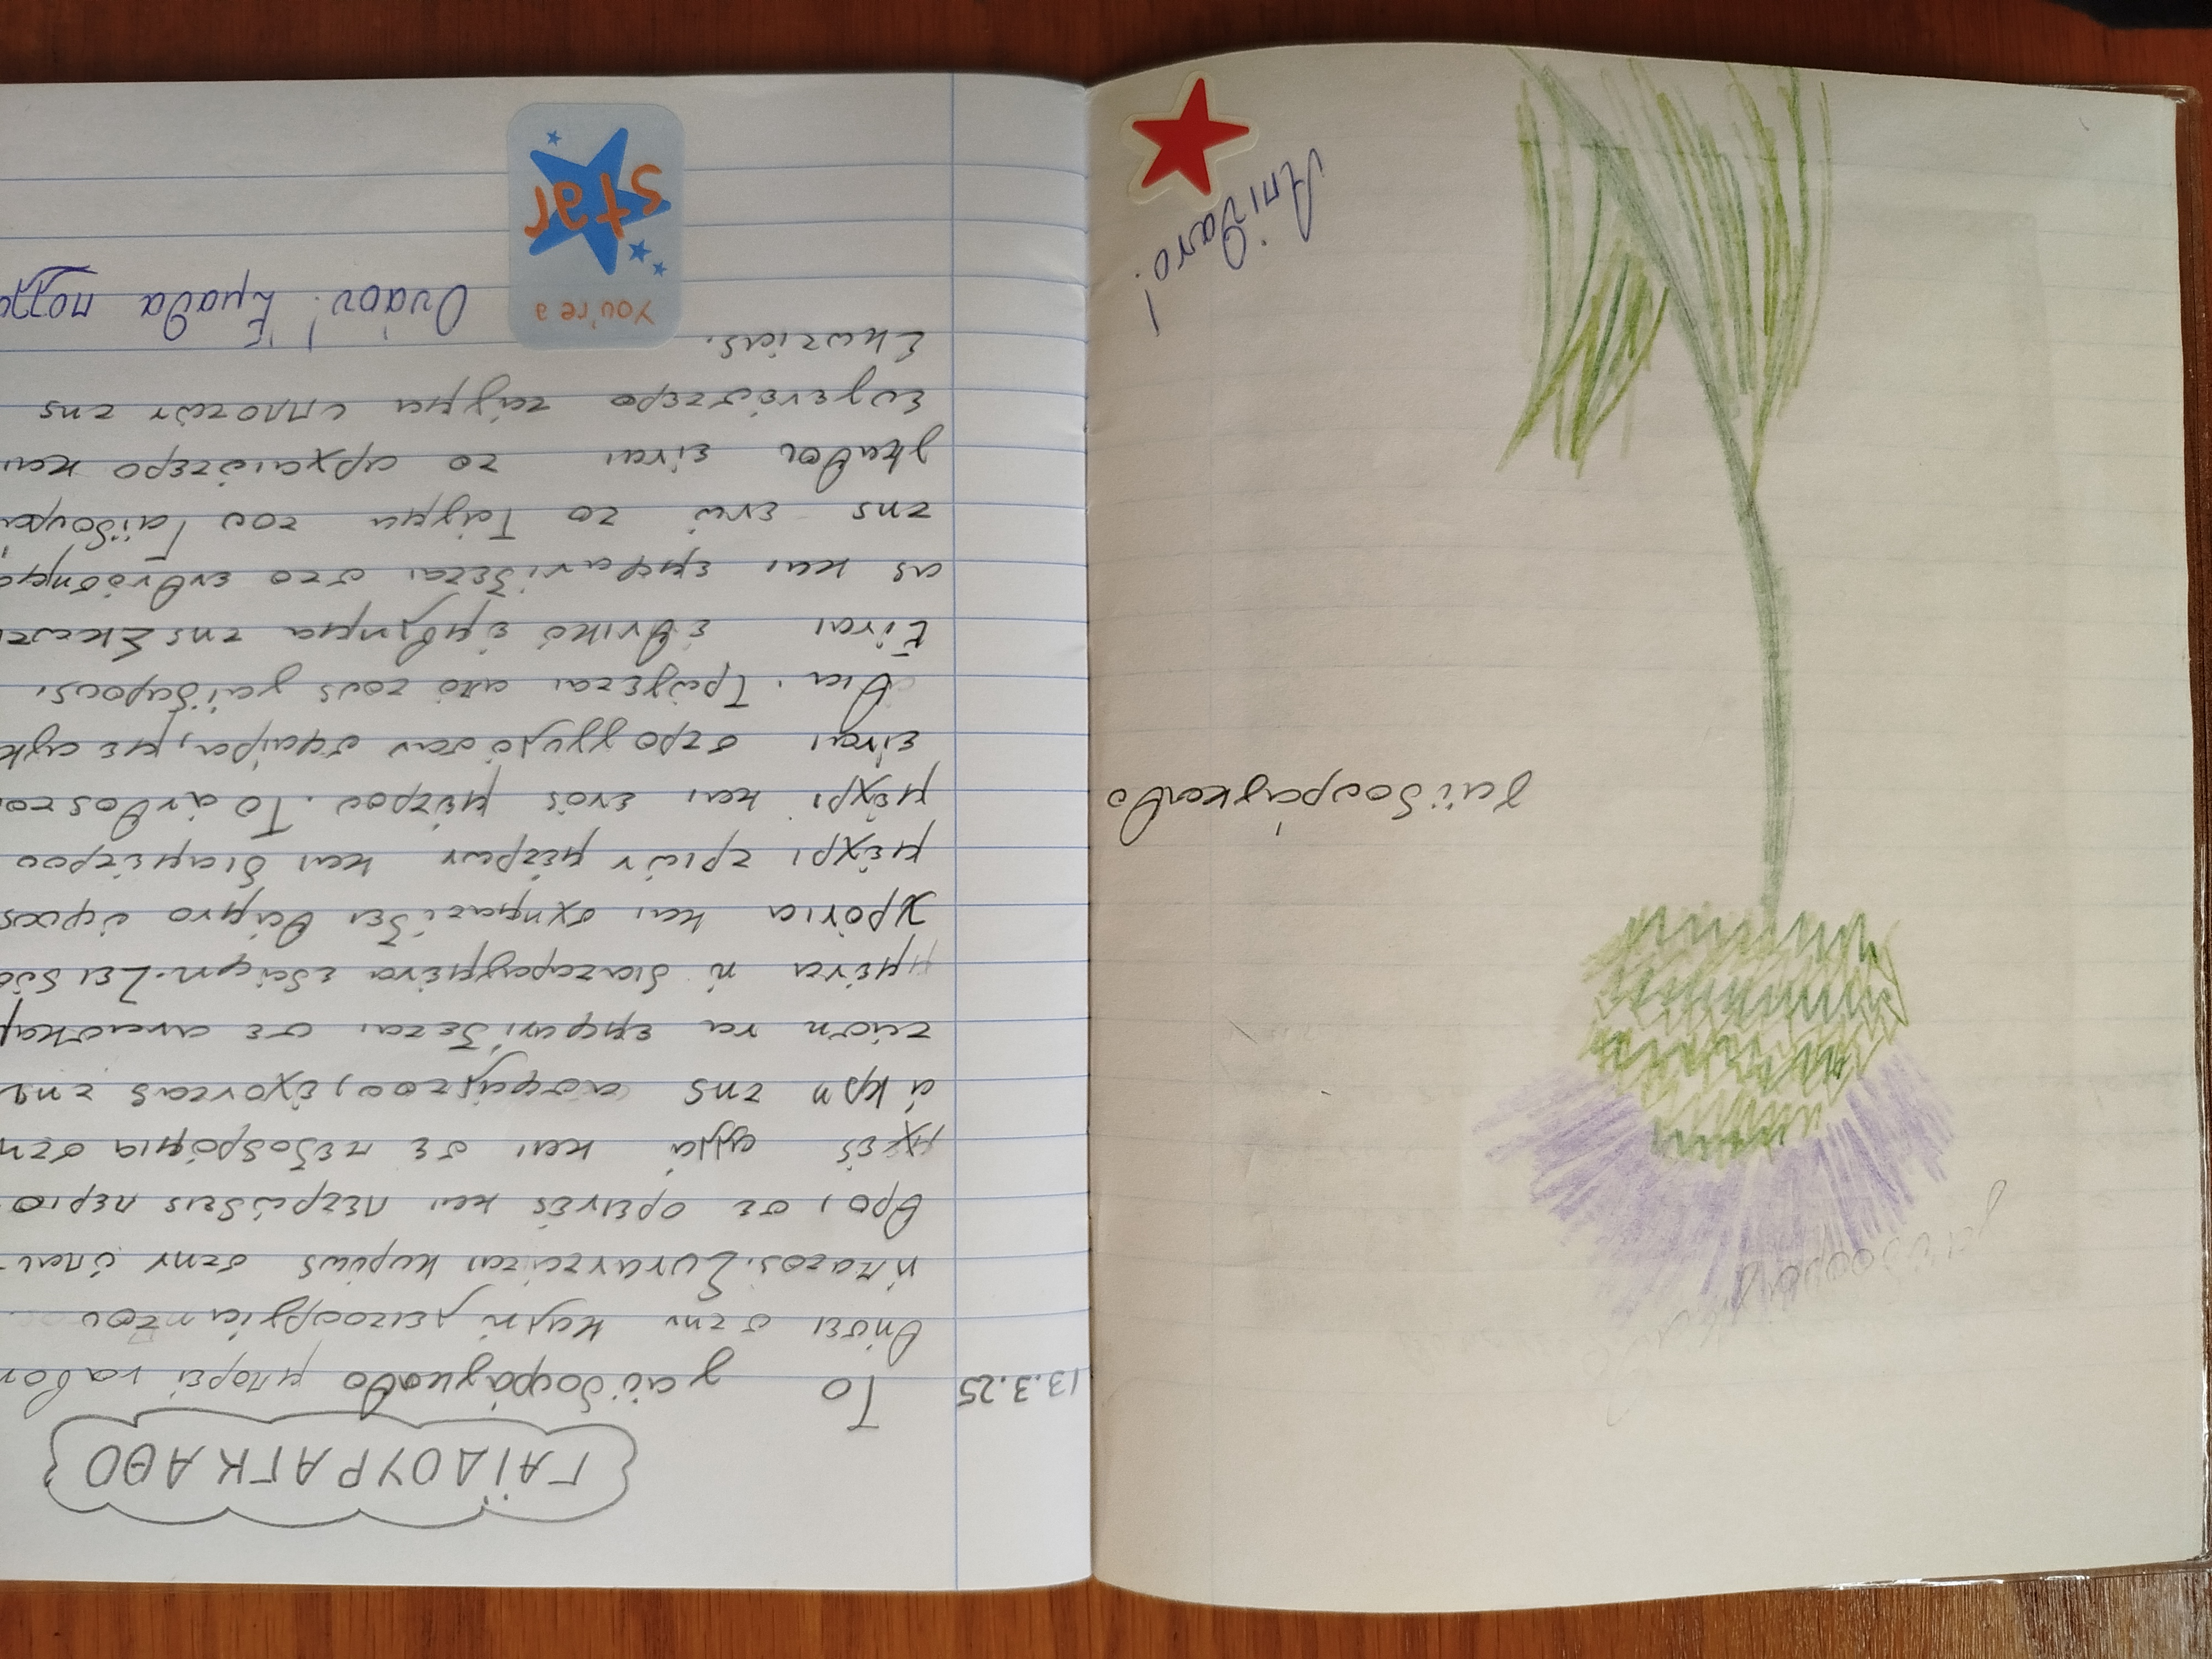 γαϊδουράγκαθο
Απίθανο!
ΓΑΪΔΟΥΡΑΓΚΑΘΟ
13.3.25
Το γαϊδουράγκαθο μπορεί να βοη
θήσει στην καλή λειτουργία του
ήπατος. Συναντάται κυρίως στην ύπαι-
θρο, σε ορεινές και πετρώδεις περιο
χές αλλά και σε πεζοδρόμια στη
άκρη της ασφάλτου, έχοντας την
τάση να εμφανίζεται σε ανασκαμ
μμένα ή διαταραγμένα εδάφη. Ζει δύο
χρόνια και σχηματίζει θάμνο ύψους
μέχρι τριών μέτρων και διαμέτρου
μέχρι και ενός μέτρου. Το άνθος του
είναι στρογγυλό σαν σφαίρα, με αγκ
άθια. Τρώγεται από τους γαϊδάρους.
Είναι εθνικό έμβλημα της Σκωτί
ας και εμφανίζεται στο εθνόσημο
της ενώ το Τάγμα του Γαϊδουρά
γκαθου είναι το αρχαιότερο και
ευγενέστερο τάγμα ιπποτών της
Σκωτίας.
Ουάου! Έμαθα πολλά
You're a
star